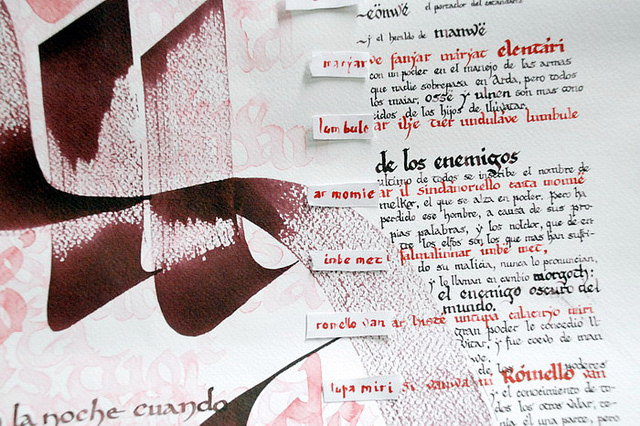 ~eönwé el portador del estandarte
~y el heraldo de manwë
maryarve fanyar máryat elentári
con un poder en el manejo de las armas
que nadie sobrepasa en Arda, pero todos
los maiar, ossë y uinen son mas cono
cidos de los hijos de Ilúvatar.
lumbule ar ilye tier undulave lumbule
de los enemigos
ultimo de todos se inscribe el nombre de
ar momie ar il sindanoriello caita mornië
melkor, el que se alza en poder. Pero ha
perdido ese hombre, a causa de sus pro
pias palabras, y los noldor, que de en
tre los elfos son los que mas han sufri
imbe met falmalinnar imbe met,
do su malicia, nunca lo pronuncian,
y le llaman en cambio morgoth:
el enemigo oscuro del
mundo.
romello van ar hísië untúpa calaciryo míri
gran poder le concedió Il
vatar, y fue coevo de man
we.
de los poderes
lupa miri si vanwa ná Rómello van
y el conocimiento de to
dos los otros vilar, to
nía el una parte, pero
la noche cuando